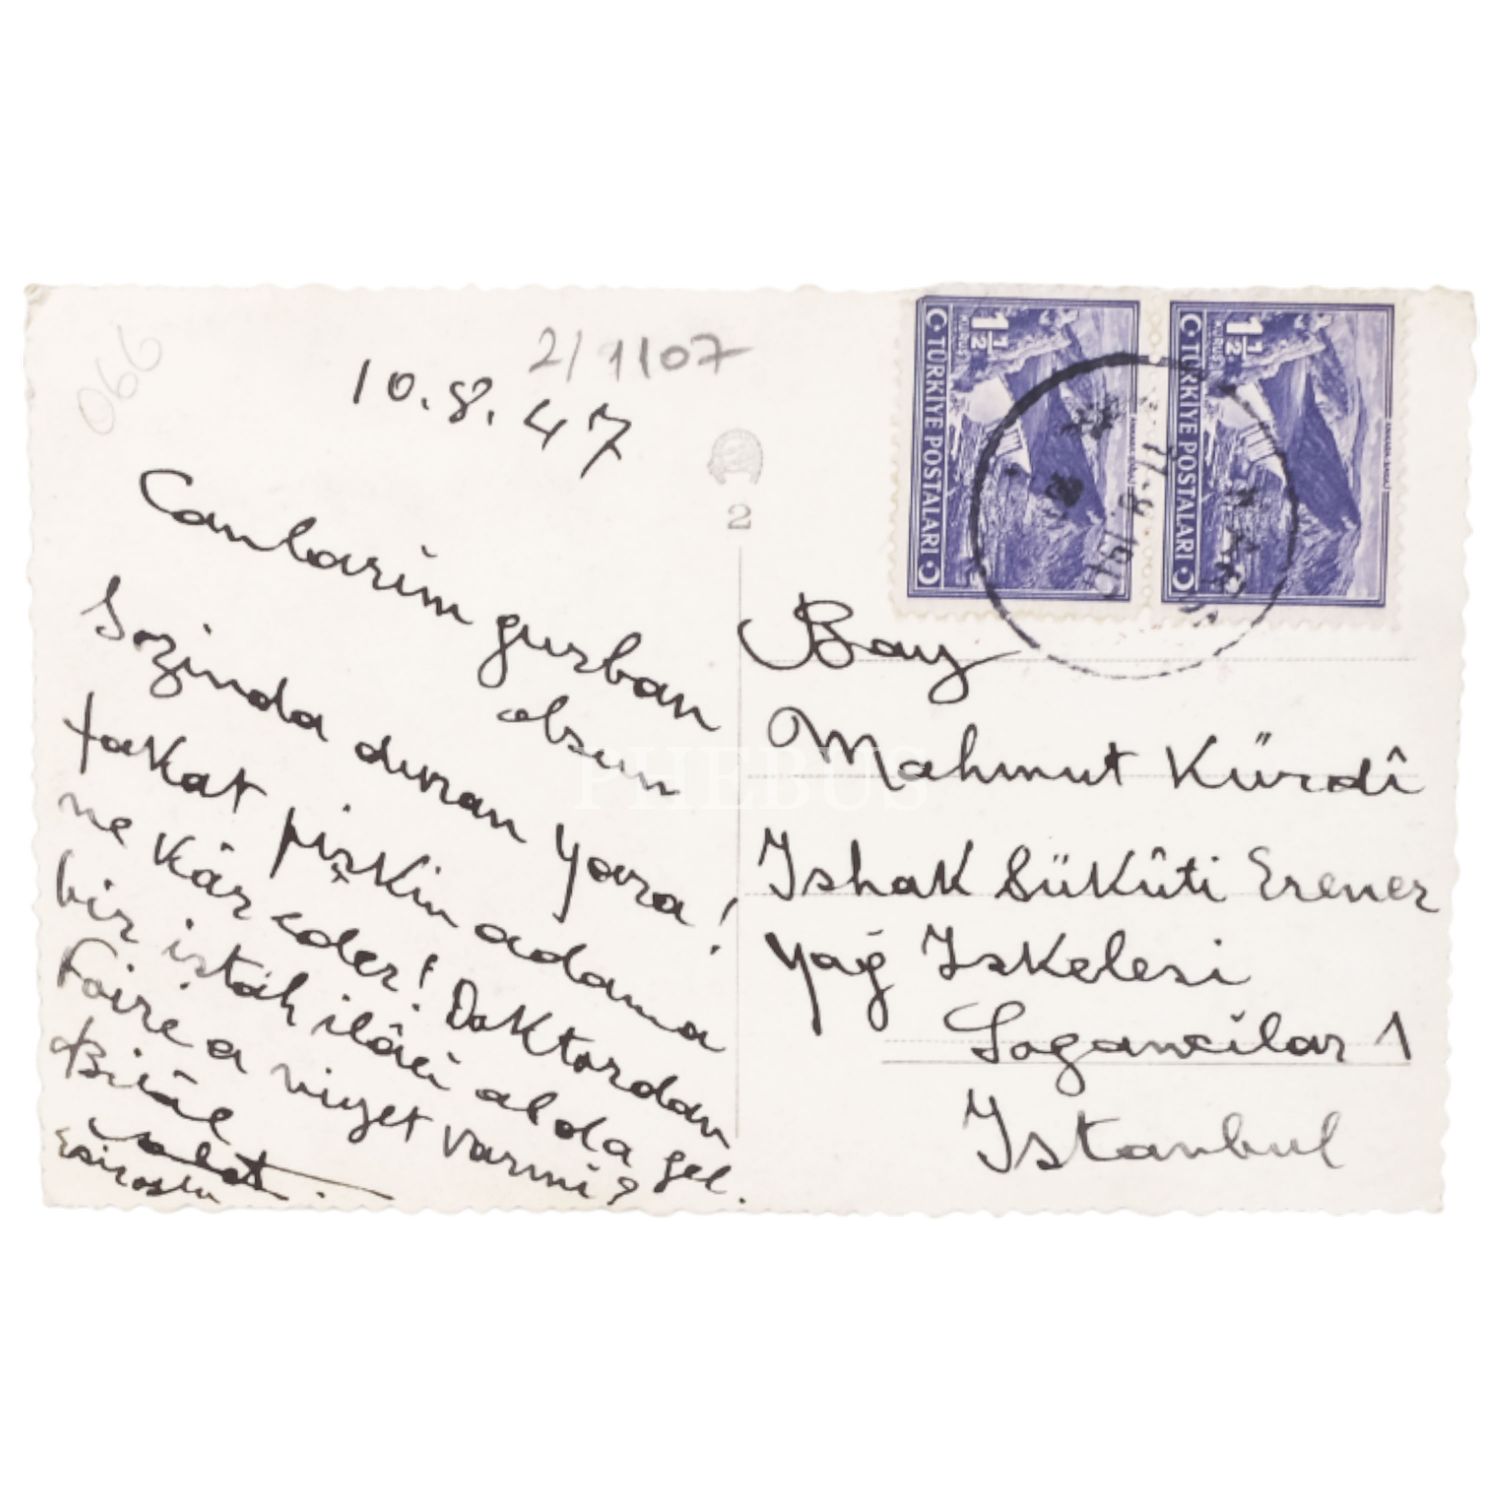 066
2/1107
10.8.47
Canlarım gurban
olsun
Sozinda duran yara!
fakat pişkin adama
ne kâr eder! Doktordan
bir istâh ilâci alda gel.
Faire a viyet varmi?
Bilâl
2
1 1/2
KURUŞ
TÜRKİYE POSTALARI
1 1/2
KURUŞ
TÜRKİYE POSTALARI
Bay
Mahmut Kürdî
Ishak Süküti Erener
Yağ Iskelesi
Sogancilar 1
Istanbul
PHEBUS